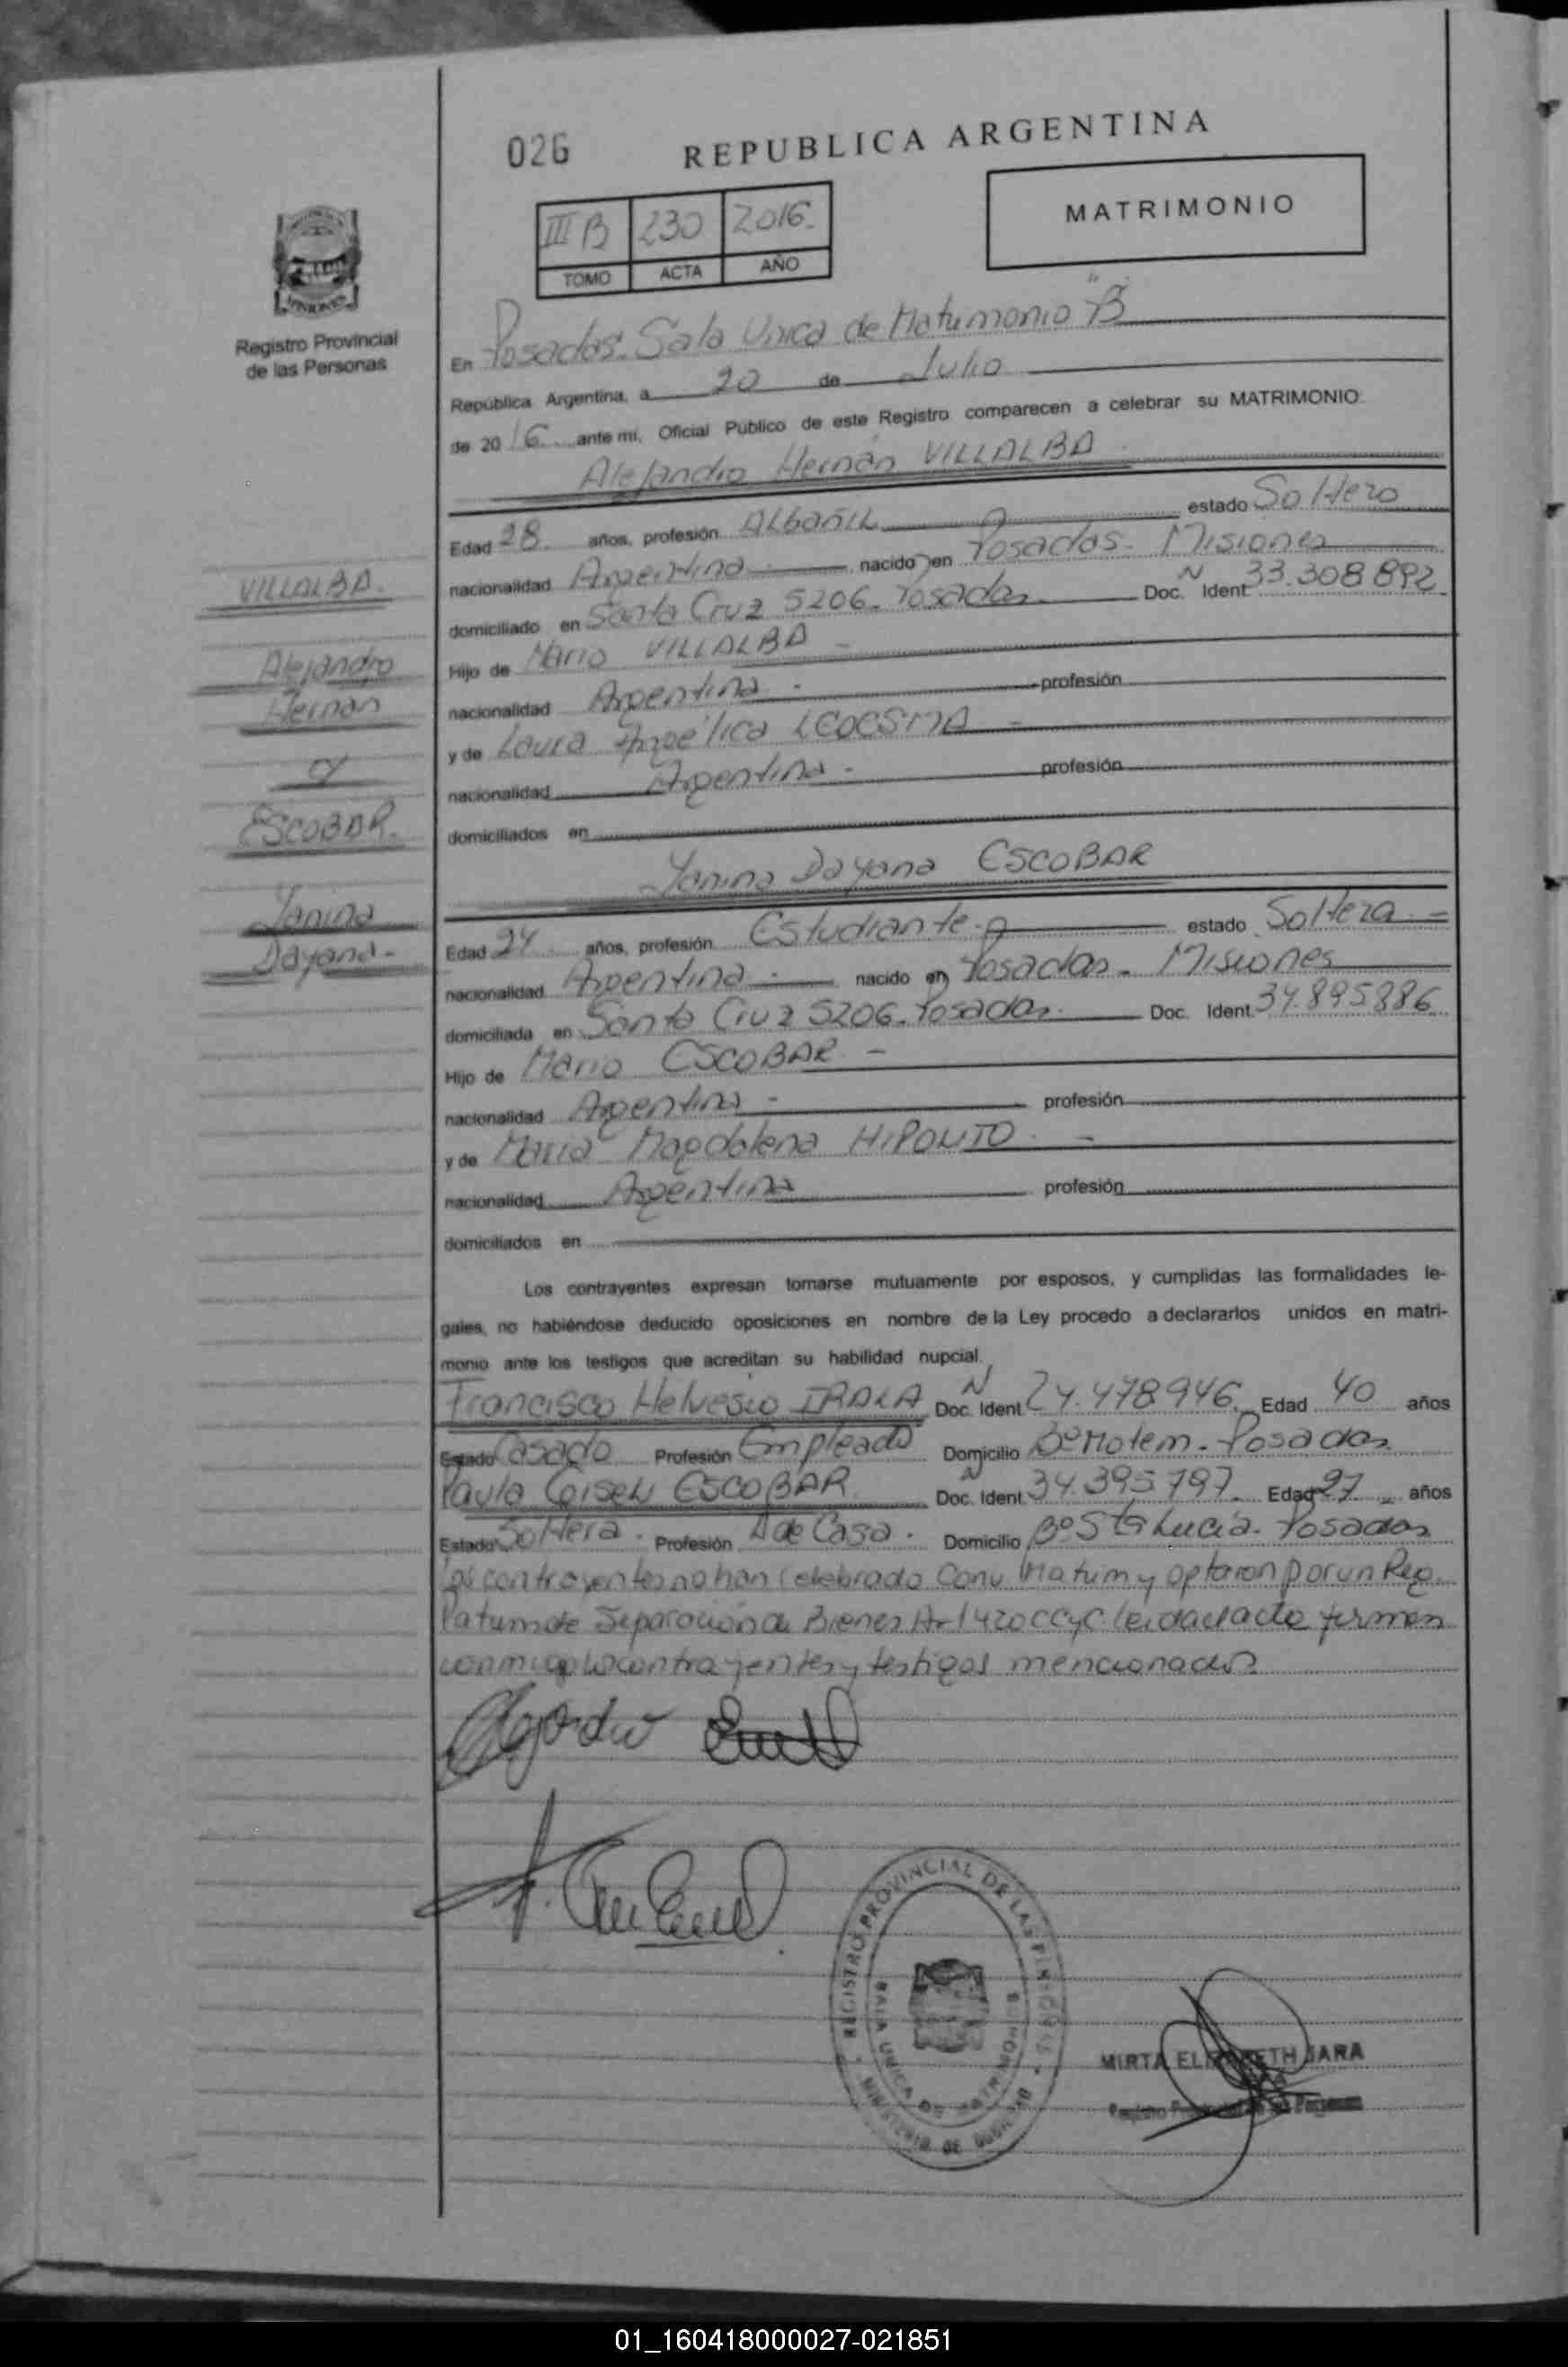 026
REPUBLICA ARGENTINA
MATRIMONIO
III B 230 2016
TOMO ACTA AÑO
Registro Provincial
de las Personas
En Posadas. Sala Unica de Matrimonio "B"
República Argentina, a 20 de Julio
de 2016 ante mí, Oficial Público de este Registro comparecen a celebrar su MATRIMONIO:
Alejandro Hernán VILLALBA
Edad 28 años, profesión Albañil estado Soltero
nacionalidad Argentina nacido en Posadas. Misiones
domiciliado en Santa Cruz 5206. Posadas Doc. N Ident. 33.308892
Hijo de Mario VILLALBA
nacionalidad Argentina profesión
y de Laura Angélica LEDESMA
nacionalidad Argentina profesión
domiciliados en
VILLALBA
Alejandro
Hernán
y
ESCOBAR
Yanina
Dayana
Yanina Dayana ESCOBAR
Edad 24 años, profesión Estudiante estado Soltera
nacionalidad Argentina nacida en Posadas. Misiones
domiciliada en Santa Cruz 5206. Posadas Doc. Ident. 34.895886
Hijo de Mario ESCOBAR
nacionalidad Argentina profesión
y de María Magdalena HIPOLITO
nacionalidad Argentina profesión
domiciliados en
Los contrayentes expresan tomarse mutuamente por esposos, y cumplidas las formalidades le-
gales, no habiéndose deducido oposiciones en nombre de la Ley procedo a declararlos unidos en matri-
monio ante los testigos que acreditan su habilidad nupcial.
Francisco Helvesio IRALA Doc. N Ident. 24.478946 Edad 40 años
Estado Casado Profesión Empleado Domicilio Bº Motem. Posadas
Paula ESCOBAR Doc. N Ident. 34.395797 Edad 27 años
Estado Soltera Profesión A de Casa Domicilio Bº Sta Lucia. Posadas
Los contrayentes no han celebrado Conv. Matrim y optaron por un Reg.
Patrim de Separación de Bienes Art 420 CCyC leída el acta firman
conmigo los contrayentes y testigos mencionados
REGISTRO PROVINCIAL DE LAS PERSONAS
SALA UNICA DE MATRIMONIOS
MINISTERIO DE GOBIERNO
MIRTA ELIZABETH JARA
Registro Provincial de las Personas
01_160418000027-021851